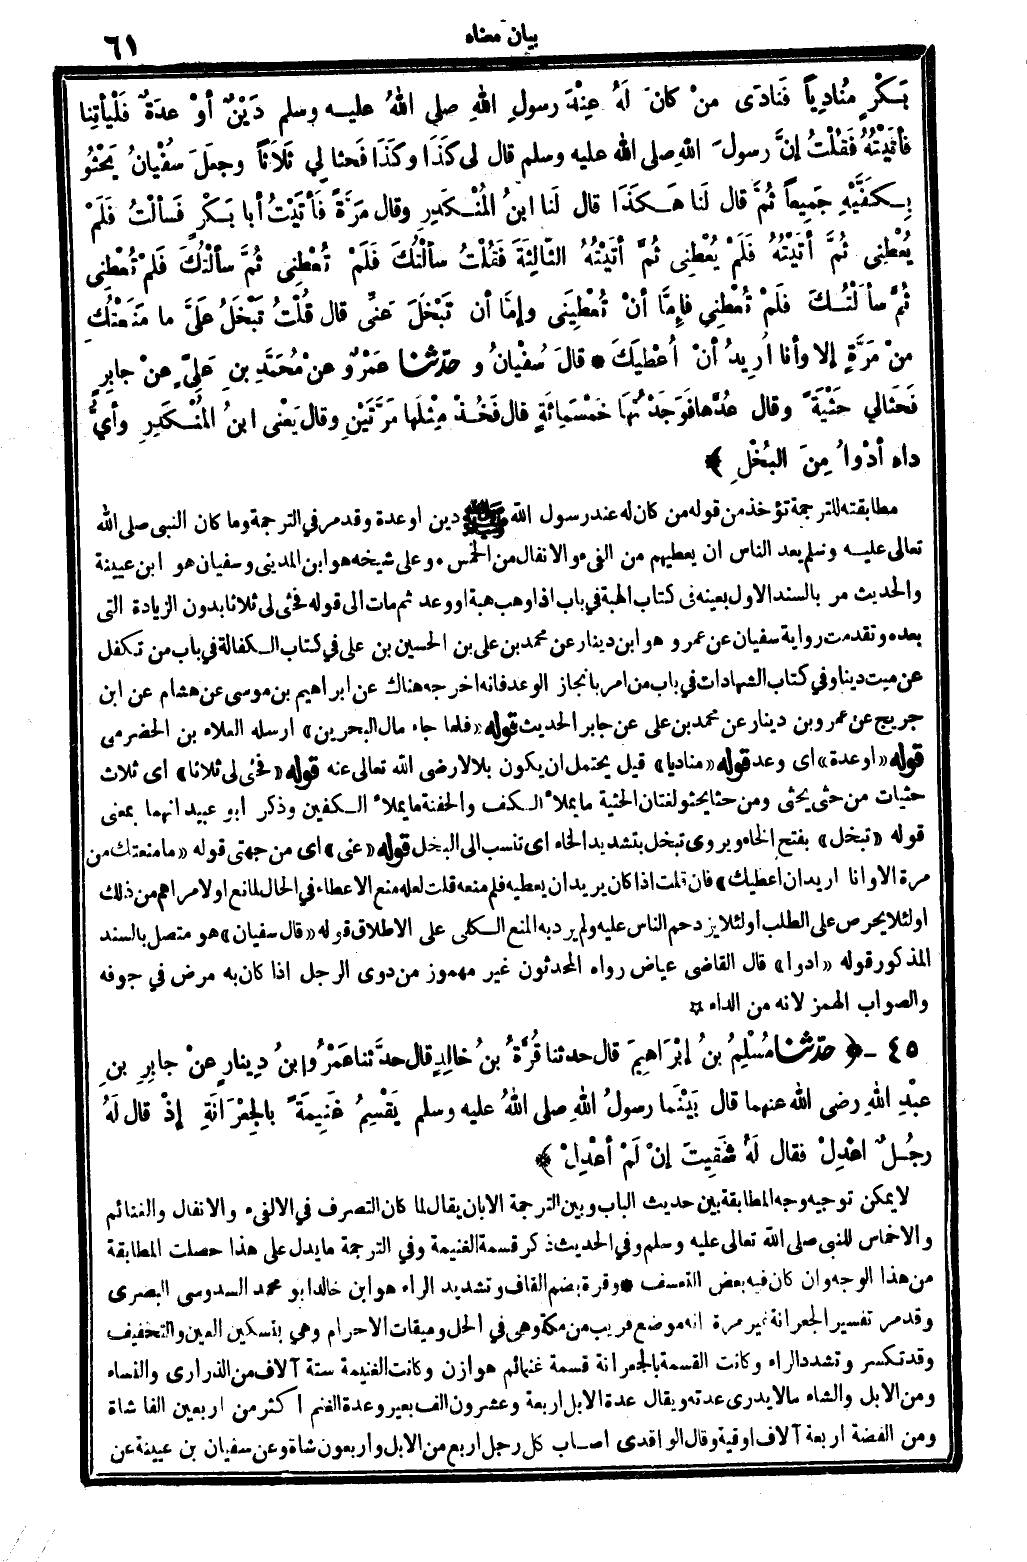 بيان معناه
٦١
بَكْرٍ مُنادِياً فَنَادَى مَنْ كانَ لَهُ عِنْدَ رسولِ اللهِ صلى اللهُ عليه وسلم دَيْنٌ أوْ عدَةٌ فَلْيأتِنا
فأتَيْتُهُ فَقُلْتُ إنَّ رسولَ اللهِ صلى الله عليه وسلم قال لى كَذَا وكَذَا فَحثا لِي ثَلَاثاً وجعَلَ سفْيانُ يَحْثُو
بِكَفَّيْهِ جَمِيعاً ثُمَّ قال لَنا هَكَذَا قال لَنا ابنُ المُنْكَدِرِ وقال مَرَّةً فَأتَيْتُ أبا بَكْرٍ فَسألْتُ فَلَمْ
يُعْطِنِى ثُمَّ أتَيْتُهُ فَلَمْ يُعْطِنِى ثُمَّ أتَيْتُهُ الثَّالِثَةَ فَقُلْتُ سألْتُكَ فَلَمْ تُعْطِنِى ثُمَّ سألْتُكَ فَلَمْ تُعْطِنِى
ثُمَّ سألْتُكَ فَلَمْ تُعْطِنِى فإمَّا أنْ تُعْطِيَنِى وإمَّا أن تَبْخَلَ عَنِّى قال قُلْتُ تَبْخَلُ عَلَىَّ ما مَنَعْتُكَ
مِنْ مَرَّةٍ إلا وأنا أُرِيدُ أنْ أُعْطِيَكَ * قالَ سُفْيانُ و حدّثنا عَمْرٌو عنْ مُحَمَّدِ بنِ عَلِىٍّ عنْ جابِرٍ
فَحَثالِي حَثْيَةً وقال عُدَّها فَوَجَدْتُهَا خَمْسَمِائَةٍ قال فَخُذْ مِثْلَها مَرَّتَيْنِ وقال يَعْنى ابنُ المُنْكَدِرِ وأىُّ
داء أدْوأُ مِنَ البُخْلِ ﴾
مطابقته للترجمة تؤخذ من قوله من كان له عند رسول الله ﷺ دين او عدة وقد مر في الترجمة وما كان النبى صلى الله
تعالى عليه وسلم يعد الناس ان يعطيهم من الفىء والانفال من الخمس * وعلى شيخه هو ابن المدينى وسفيان هو ابن عيينة
والحديث مر بالسند الاول بعينه فى كتاب الهبة في باب اذا وهب هبة او وعد ثم مات الى قوله فحثى لى ثلاثا بدون الزيادة التى
بعده وتقدمت رواية سفيان عن عمرو هو ابن دينار عن محمد بن على بن الحسين بن على في كتاب الكفالة في باب من تكفل
عن ميت دينا وفي كتاب الشهادات في باب من امر بانجاز الوعد فانه اخرجه هناك عن ابراهيم بن موسى عن هشام عن ابن
جريج عن عمرو بن دينار عن محمد بن على عن جابر الحديث قوله «فلما جاء مال البحرين» ارسله العلاء بن الحضرمى
قوله «او عدة» اى وعد قوله «مناديا» قيل يحتمل ان يكون بلالا رضى الله تعالى عنه قوله «فحثى لى ثلاثا» اى ثلاث
حثيات من حثى يحثى ومن حثا يحثو لغتان الحثية ما يملأ الكف والحفنة ما يملأ الكفين وذكر ابو عبيد انهما بمعنى
قوله «تبخل» بفتح الخاء ويروى تبخل بتشديد الخاء اى تنسب الى البخل قوله «عنى» اى من جهتى قوله «ما منعتك من
مرة الا وانا اريد ان اعطيك» فان قلت اذا كان يريد ان يعطيه فلم منعه قلت لعله منع الاعطاء في الحال لمانع او لامر اهم من ذلك
او لئلا يحرص على الطلب او لئلا يزدحم الناس عليه ولم يرد به المنع الكلى على الاطلاق قوله «قال سفيان» هو متصل بالسند
المذكور قوله «ادوا» قال القاضى عياض رواه المحدثون غير مهموز من دوى الرجل اذا كان به مرض في جوفه
والصواب الهمز لانه من الداء ¤
٤٥ - ﴿ حدّثنا مُسْلِمُ بنُ إبْرَاهِيمَ قال حدثنا قُرَّةُ بنُ خالِدٍ قال حدَّثنا عَمْرُو ابنُ دِينارٍ عنْ جابِرِ بنِ
عبْدِ اللهِ رضى الله عنهما قال بَيْنَما رسولُ اللهِ صلى اللهُ عليه وسلم يَقْسِمُ غَنِيمَةً بالجِعْرَانَةِ إذْ قال لَهُ
رجُلٌ اعْدِلْ فقال لَهُ شَقِيتَ إنْ لَمْ أعْدِلْ ﴾
لا يمكن توجيه وجه المطابقة بين حديث الباب وبين الترجمة الا بان يقال لما كان التصرف في الالفىء والانفال والغنائم
والاخماس للنبى صلى الله تعالى عليه وسلم وفي الحديث ذكر قسمة الغنيمة وفي الترجمة ما يدل على هذا حصلت المطابقة
من هذا الوجه وان كان فيه بعض التعسف * وقرة بضم القاف وتشديد الراء هو ابن خالد ابو محمد السدوسى البصرى
وقد مر تفسير الجعرانة غير مرة انه موضع قريب من مكة وهى في الحل وميقات الاحرام وهي بتسكين العين والتخفيف
وقد تكسر وتشدد الراء وكانت القسمة بالجعرانة قسمة غنائم هوازن وكانت الغنيمة ستة آلاف من الذرارى والنساء
ومن الابل والشاء مالا يدرى عدته ويقال عدة الابل اربعة وعشرون الف بعير وعدة الغنم اكثر من اربعين الفا شاة
ومن الفضة اربعة آلاف اوقية وقال الواقدى اصاب كل رجل اربع من الابل واربعون شاة وعن سفيان بن عيينة عن